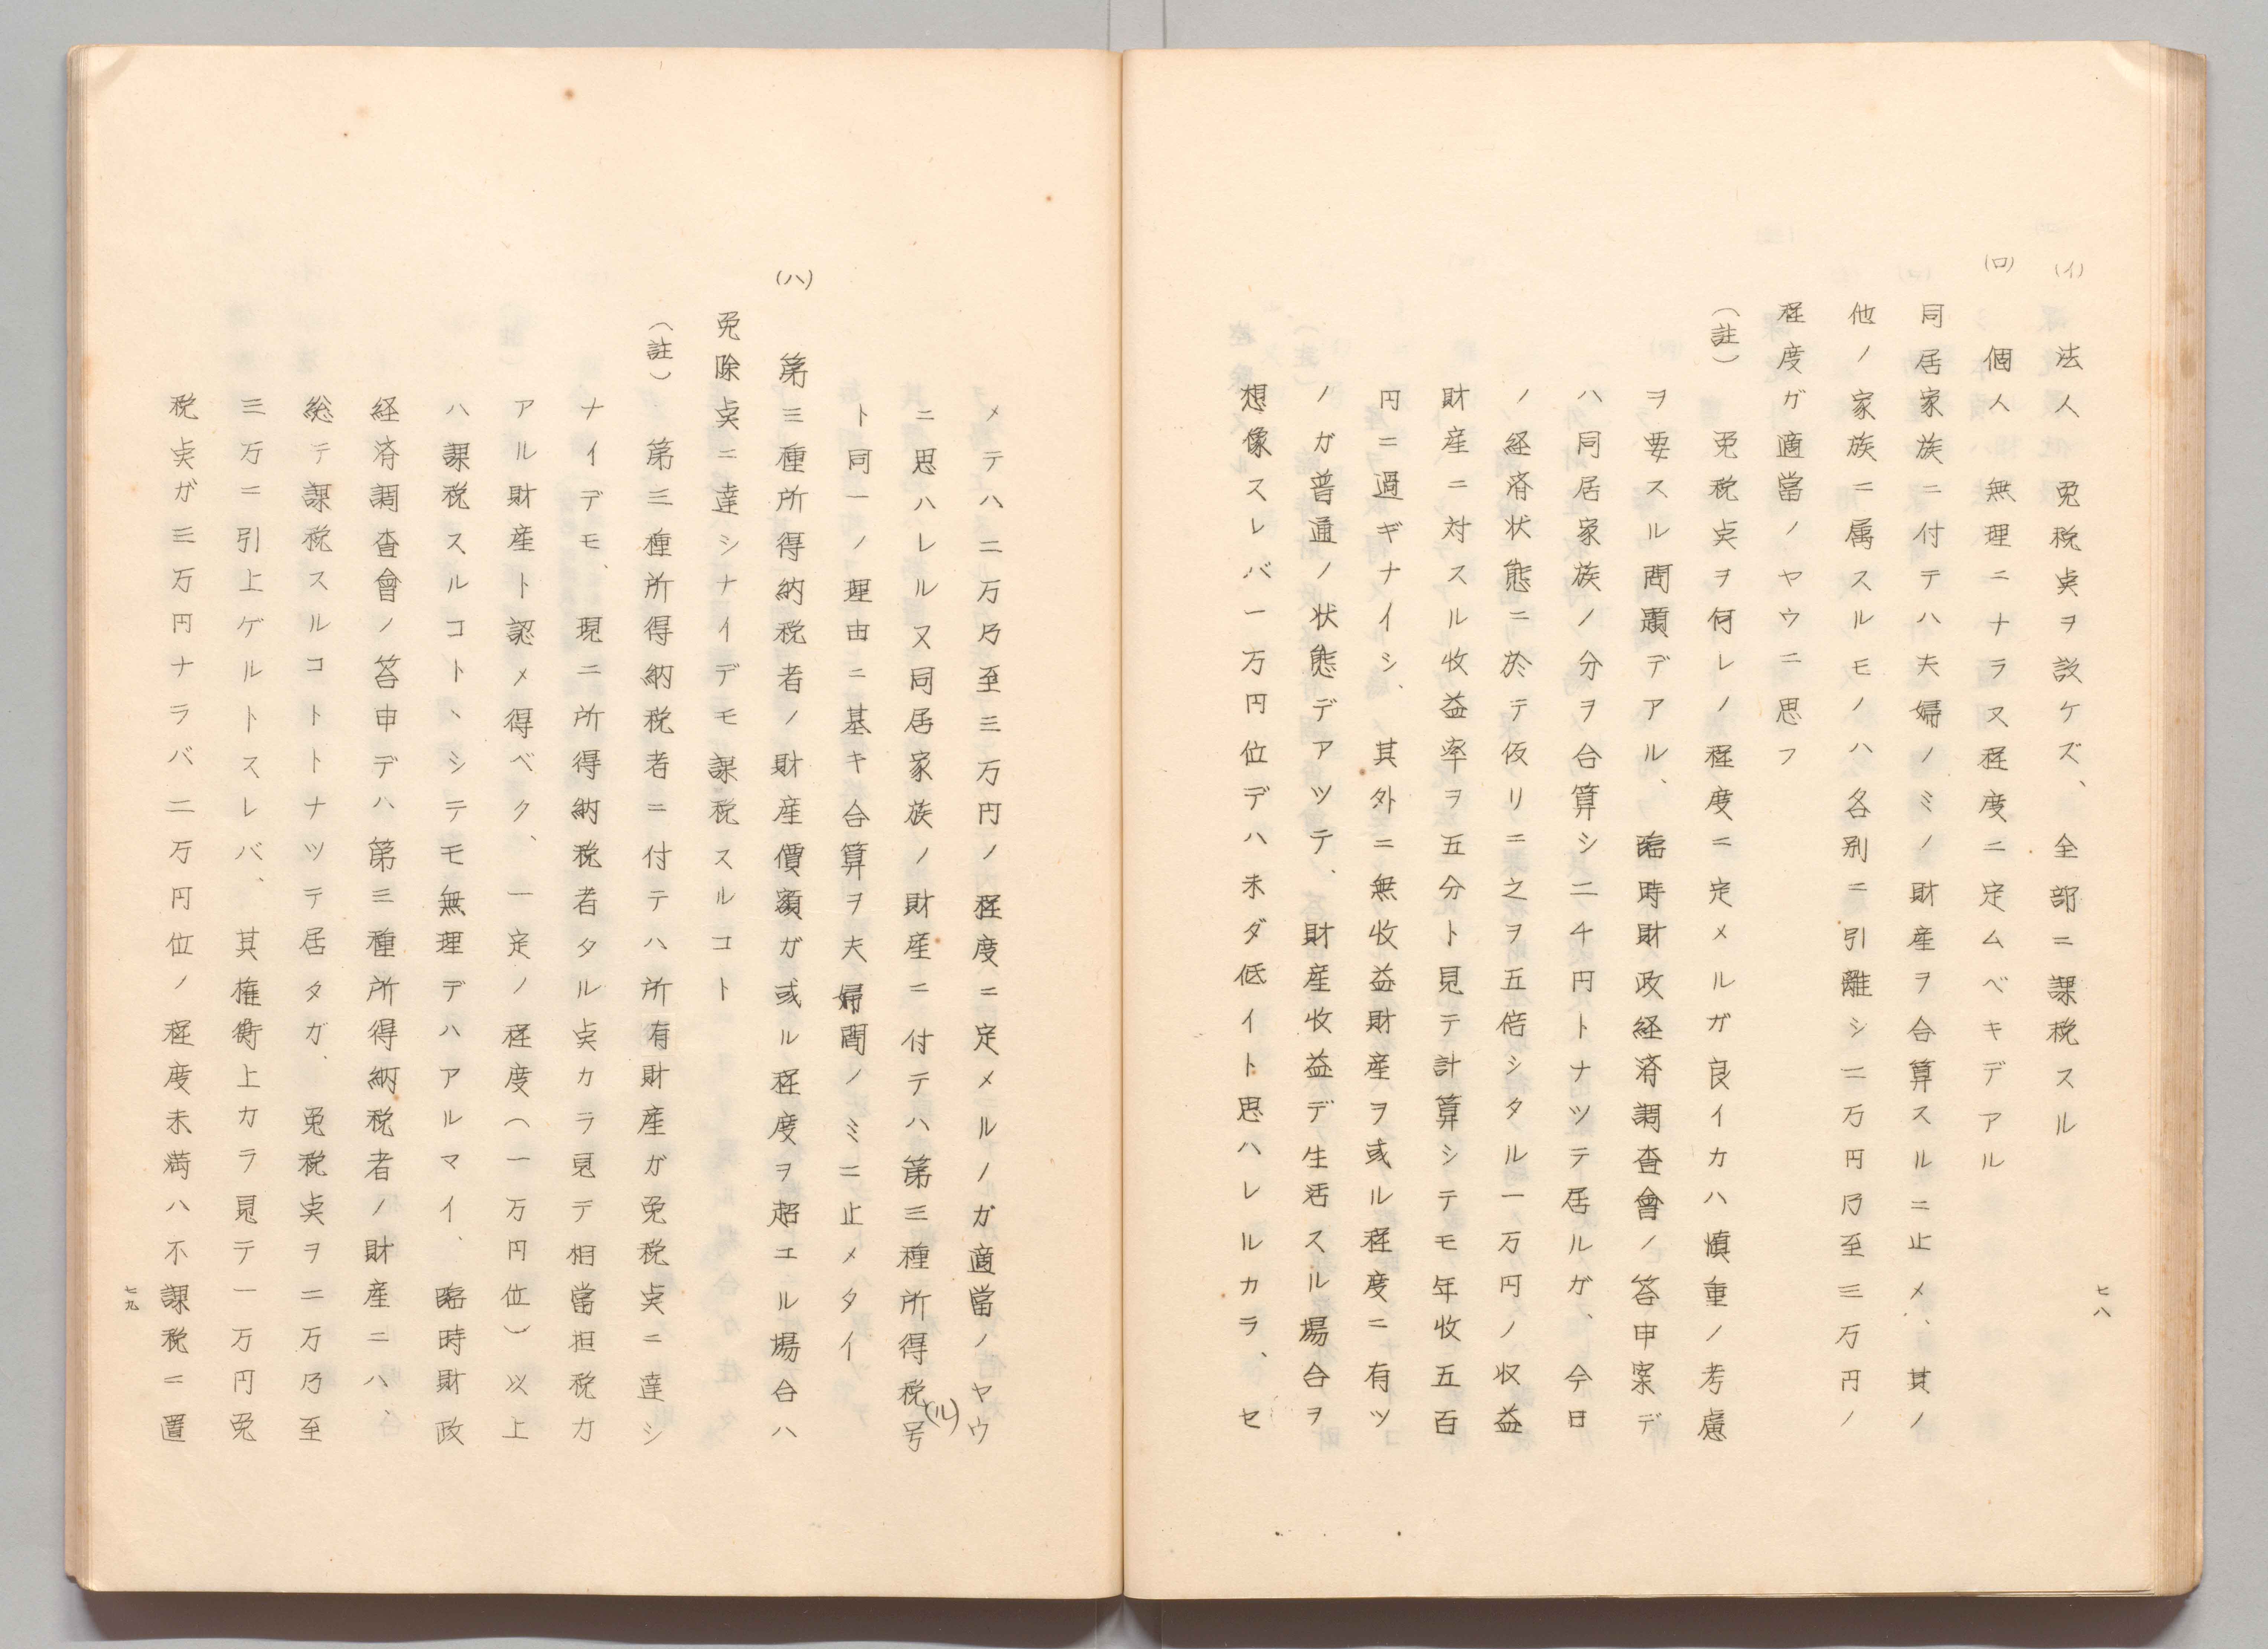 七八
(イ) 法人 免税点ヲ設ケズ、全部ニ課税スル
(ロ) 個人 無理ニナラヌ程度ニ定ムベキデアル
同居家族ニ付テハ夫婦ノミノ財産ヲ合算スルニ止メ、其ノ
他ノ家族ニ属スルモノハ各別ニ引離シ二万円乃至三万円ノ
程度ガ適當ノヤウニ思フ
(註) 免税点ヲ何レノ程度ニ定メルガ良イカハ慎重ノ考慮
ヲ要スル問題デアル、臨時財政経済調査會ノ答申案デ
ハ同居家族ノ分ヲ合算シ二千円トナツテ居ルガ、今日
ノ経済状態ニ於テ仮リニ之ヲ五倍シタル一万円ノ収益
財産ニ対スル收益率ヲ五分ト見テ計算シテモ年收五百
円ニ過ギナイシ、其外ニ無收益財産ヲ或ル程度ニ有ツ
ノガ普通ノ状態デアツテ、財産收益デ生活スル場合ヲ
想像スレバ一万円位デハ未ダ低イト思ハレルカラ、セ
メテハ二万乃至三万円ノ程度ニ定メルノガ適當ノヤウ
ニ思ハレル又同居家族ノ財産ニ付テハ第三種所得税号(ル)
ト同一ノ理由ニ基キ合算ヲ夫婦間ノミニ止メタイ
(ハ) 第三種所得納税者ノ財産價額ガ或ル程度ヲ超エル場合ハ
免除点ニ達シナイデモ課税スルコト
(註) 第三種所得納税者ニ付テハ所有財産ガ免税点ニ達シ
ナイデモ、現ニ所得納税者タル点カラ見テ相當担税力
アル財産ト認メ得ベク、一定ノ程度(一万円位)以上
ハ課税スルコトヽシテモ無理デハアルマイ、臨時財政
経済調査會ノ答申デハ第三種所得納税者ノ財産ニハ、
総テ課税スルコトトナツテ居タガ、免税点ヲ二万乃至
三万ニ引上ゲルトスレバ、其権衡上カラ見テ一万円免
税点ガ三万円ナラバ二万円位ノ程度未満ハ不課税ニ置
七九